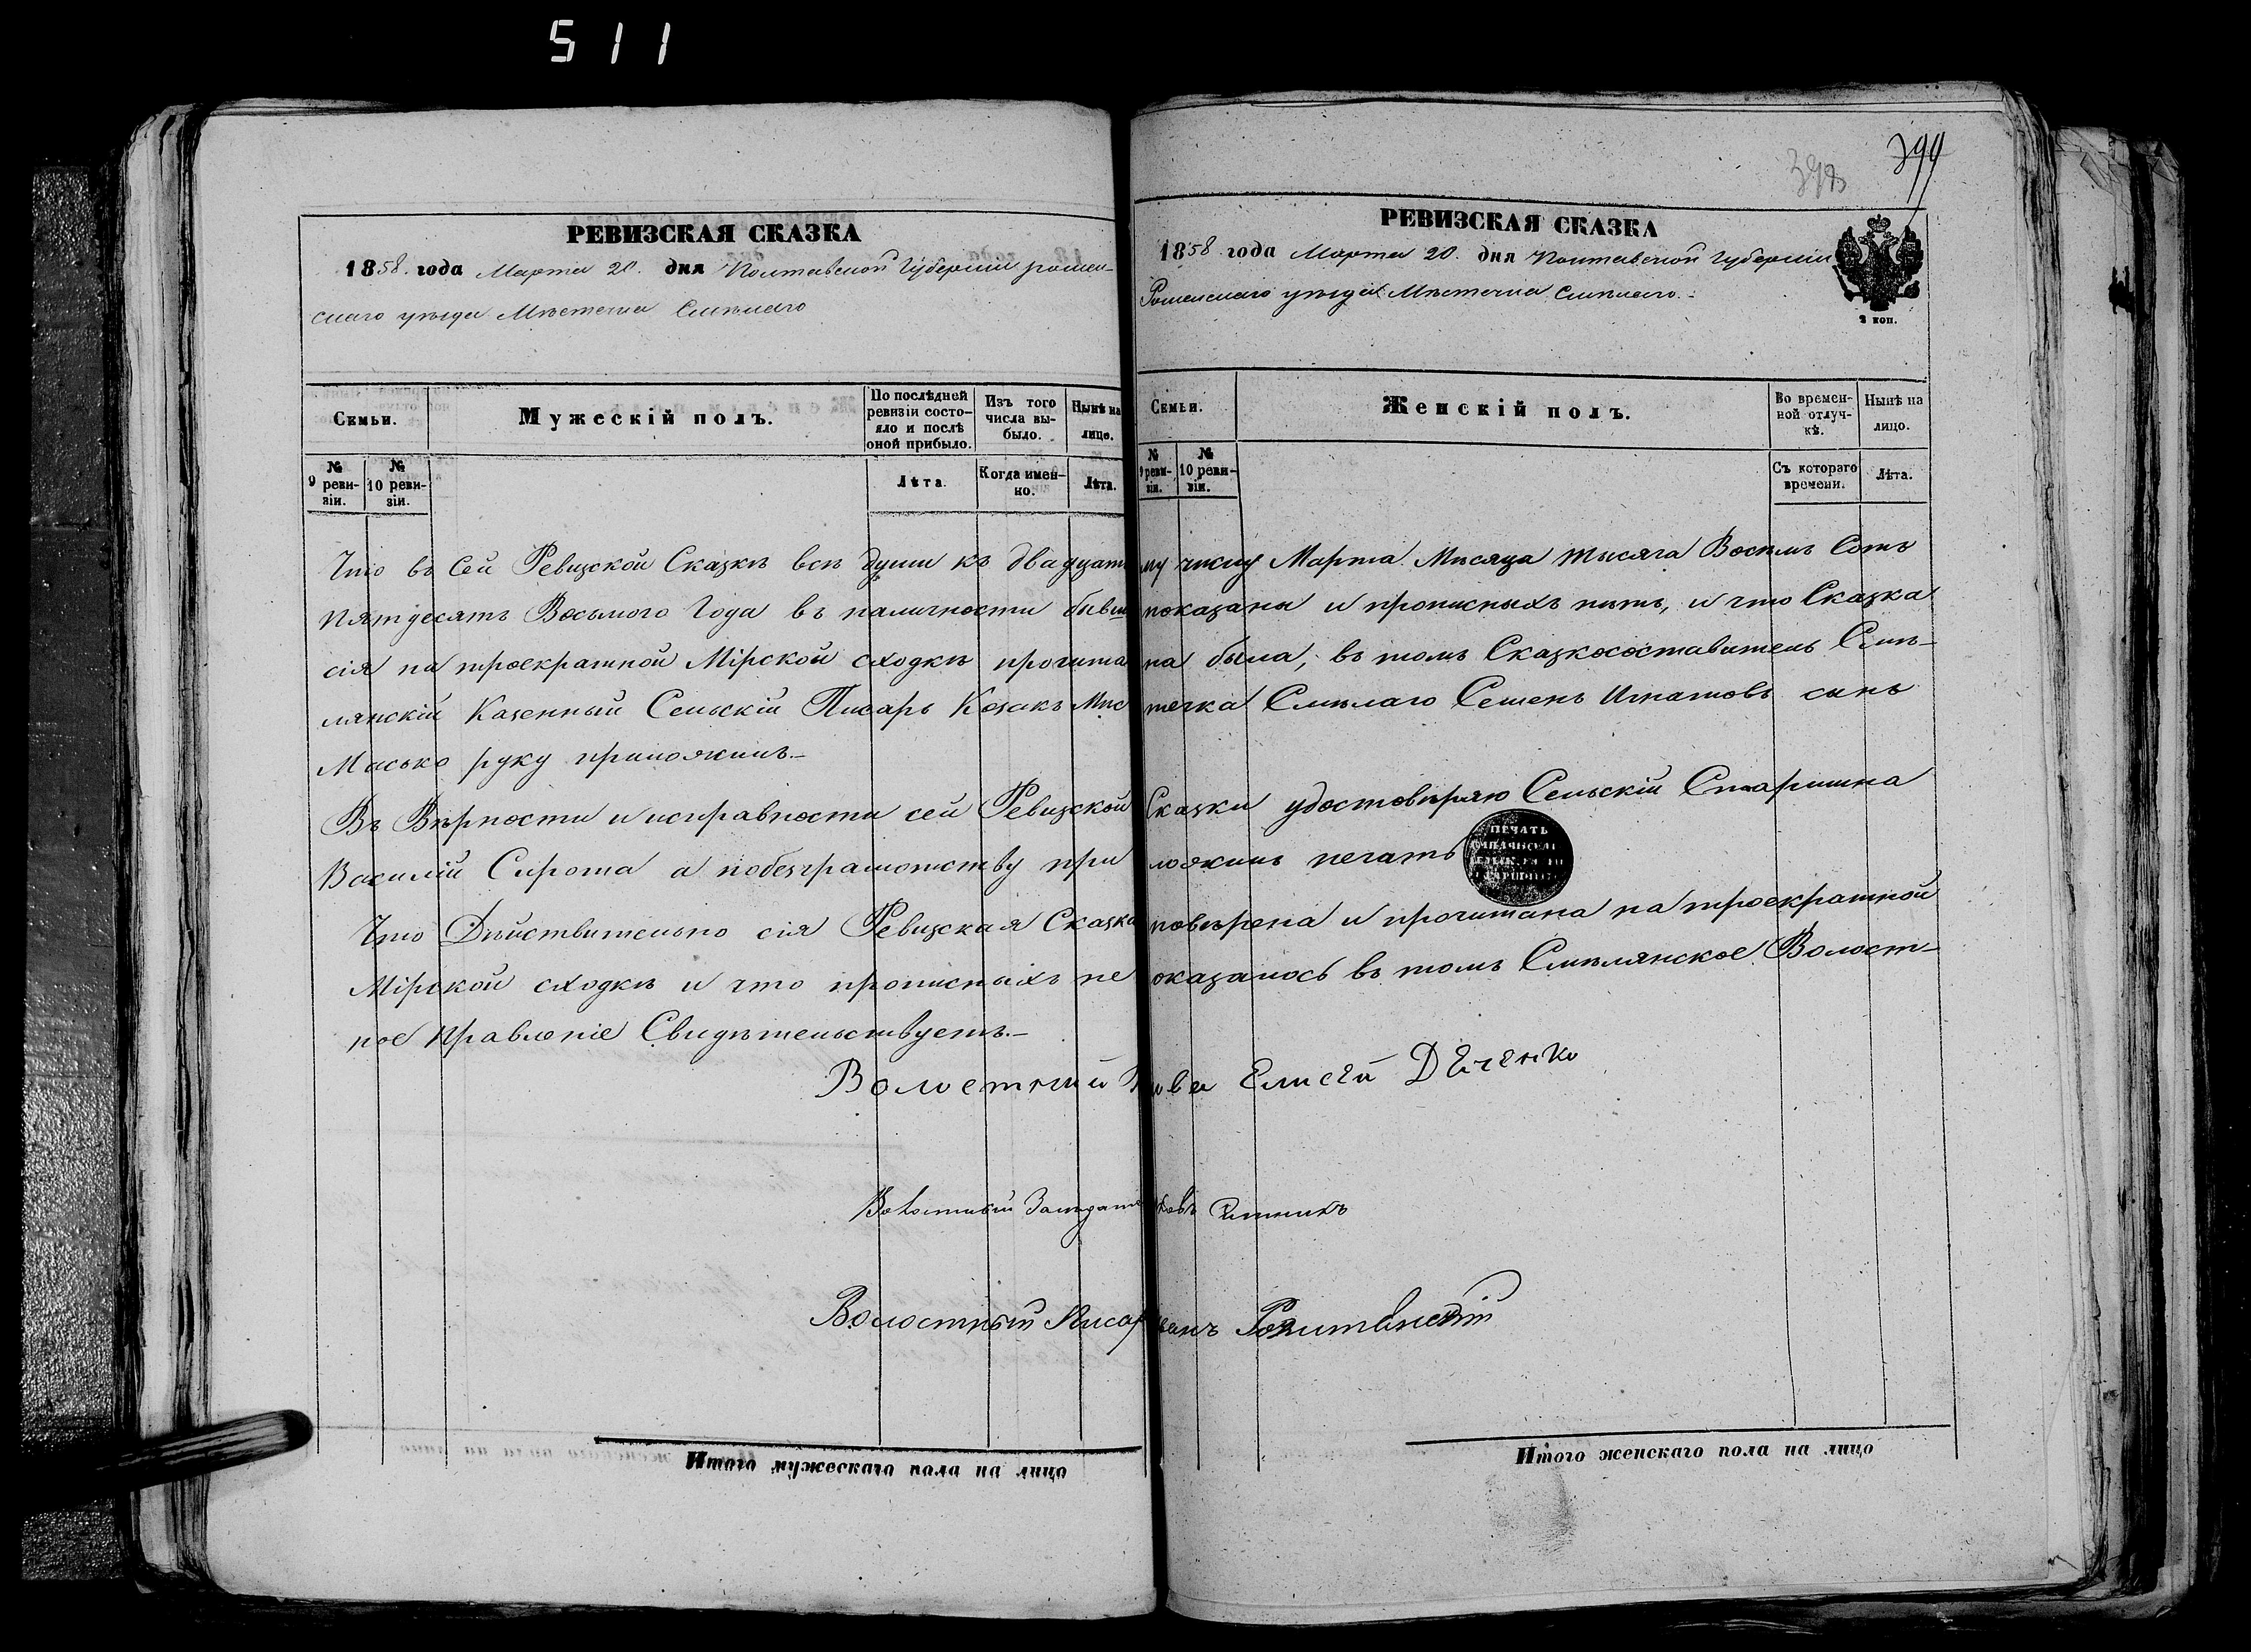 511
399
РЕВИЗСКАЯ СКАЗКА
1858 года Марта 20. дня Полтавской Губерніи ромен-
скаго уѣзда Мѣстечка Смѣлаго
Семьи.
Мужескій полъ.
По послѣдней ревизіи состо-
яло и послѣ оной прибыло.
Изъ того числа вы-
было.
Нынѣ на лицо.
№ 9 реви-
зіи.
№ 10 реви-
зіи.
Лѣта.
Когда имен-
но.
Лѣта.
РЕВИЗСКАЯ СКАЗКА
1858 года Марта 20. дня Полтавской Губерніи
Роменскаго уѣзда Мѣстечка Смѣлаго.
2 коп.
Семьи.
Женскій полъ.
Во времен-
ной отлуч-
кѣ.
Нынѣ на лицо.
№ 9 реви-
зіи.
№ 10 реви-
зіи.
Съ котораго времени.
Лѣта.
Что въ сей Ревизской Сказкѣ всѣ души къ двадцатому числу Марта Мѣсяца тысяча Восемь Сотъ
пятдесятъ Восьмого Года въ наличности бывш показаны и прописныхъ нѣтъ, и что Сказка
сія на троекратной Мірской сходкѣ прочитана была, въ томъ Сказкосоставитель Смѣ-
лянскій Казенный Сельскій Писарь Козакъ Мѣстечка Смѣлаго Семенъ Игнатовъ сынъ
Масько руку приложилъ.
Въ Вѣрности и исправности сей Ревизской Сказки удостовѣряю Сельскій Старшина
Василій Сирота а по безграмотству приложилъ печать
ПЕЧАТЬ
Что Дѣйствительно сія Ревизская Сказка повѣрена и прочитана на троекратной
Мірской сходкѣ и что прописныхъ не оказалось въ томъ Смѣлянское Волост-
ное Правленіе Свидѣтельствуетъ.
Волостный Голова Елисей Дейченко
Волостный Засѣдатель
Волостный Писарь Иванъ
Итого мужескаго пола на лицо
Итого женскаго пола на лицо